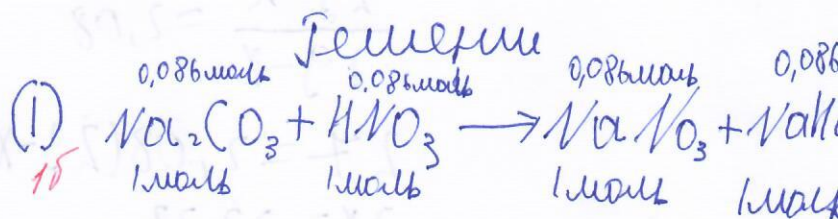 Решение
0,086моль 0,086моль 0,086моль 0,086
① Na₂CO₃ + HNO₃ → NaNO₃ + NaH
1б 1моль 1моль 1моль 1моль